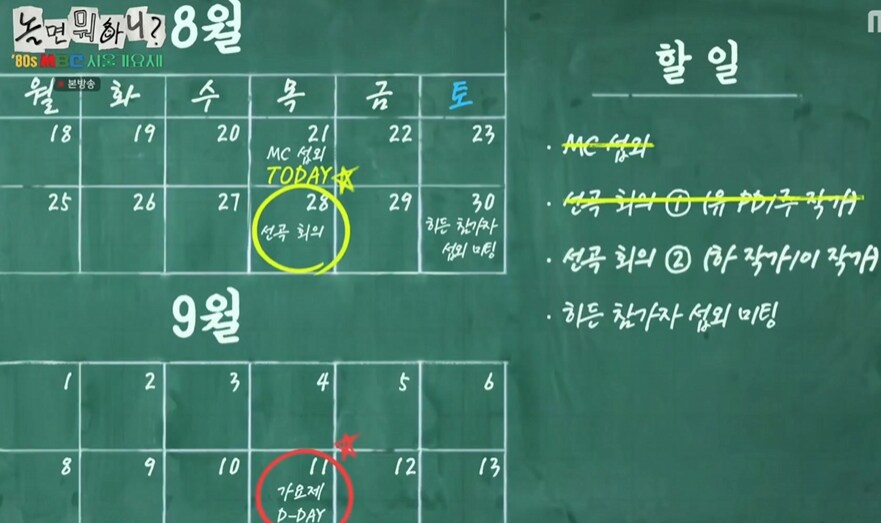 놀면 뭐하니?
'80s MBC 서울가요제
본방송
M
8월
월 화 수 목 금 토
18 19 20 21 22 23
MC 섭외
TODAY
25 26 27 28 29 30
선곡 회의
히든 참가자
섭외 미팅
9월
1 2 3 4 5 6
8 9 10 11 12 13
가요제
D-DAY
할 일
· MC 섭외
· 선곡 회의 ① (유 PD/주 작가)
· 선곡 회의 ② (하 작가/이 작가)
· 히든 참가자 섭외 미팅